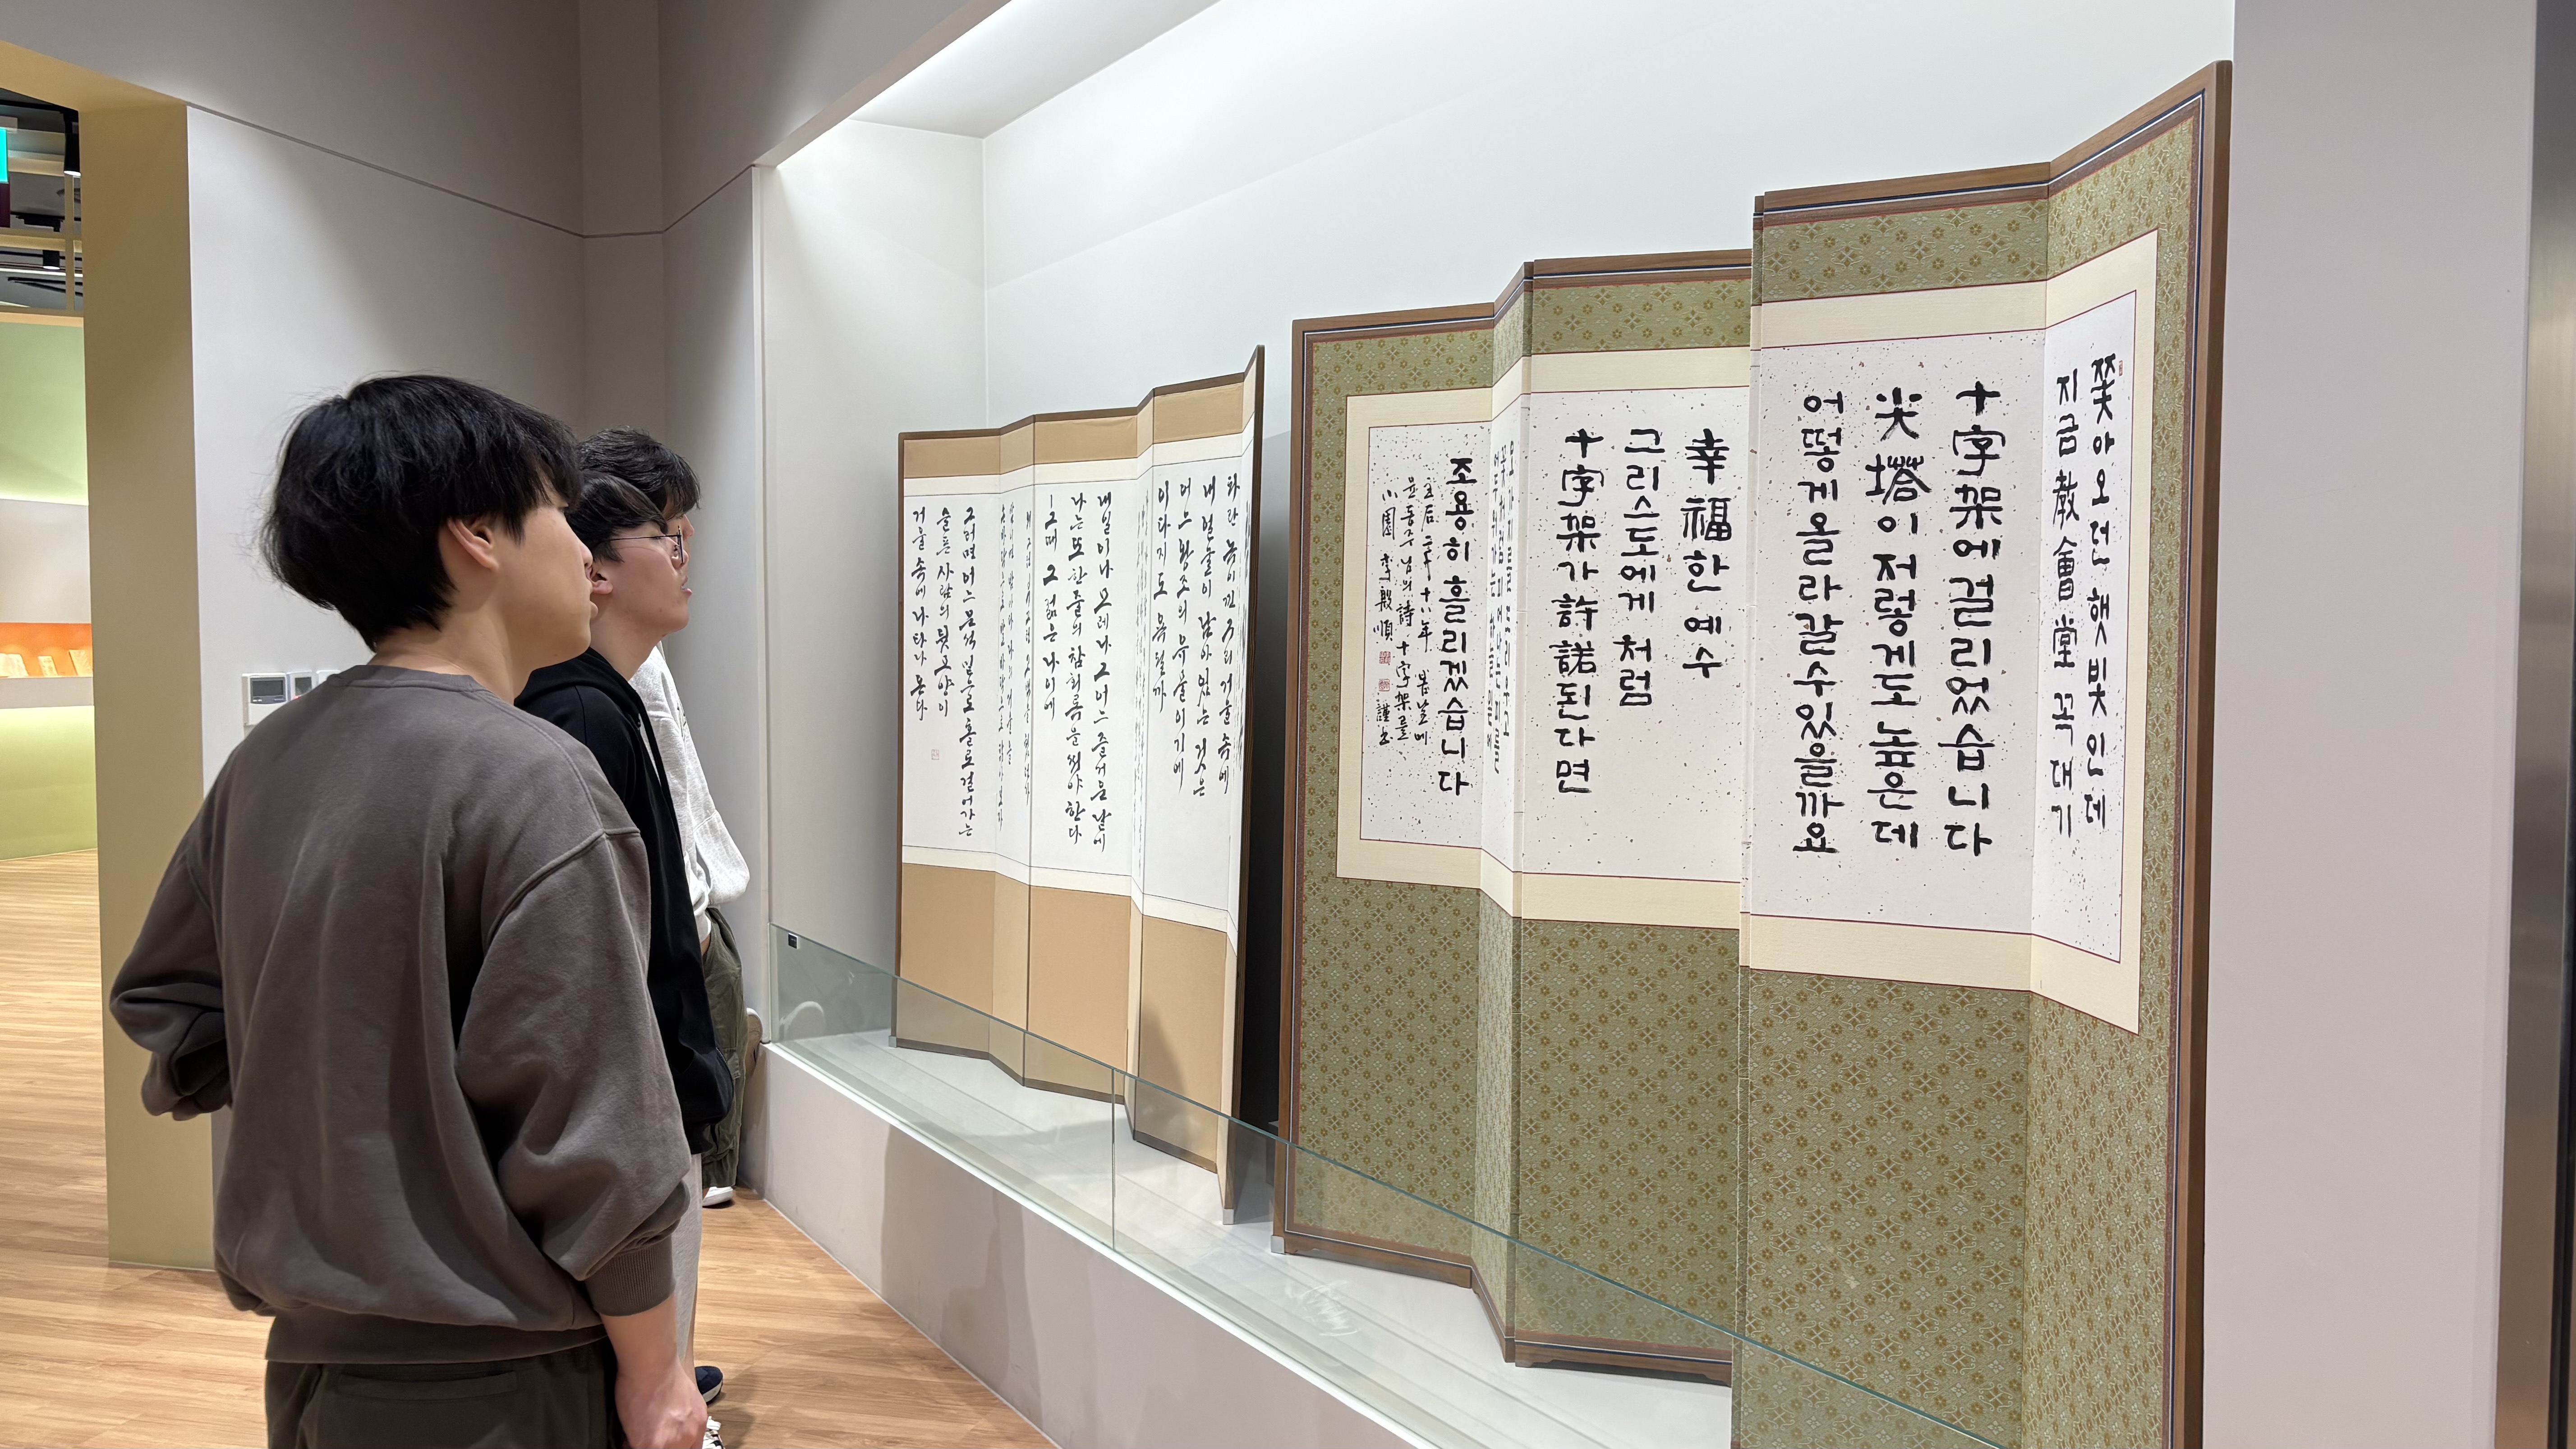 쫓아오던 햇빛인데
지금 教會堂 꼭대기
十字架에 걸리었습니다
尖塔이 저렇게도 높은데
어떻게 올라갈수있을까요
幸福한 예수
그리스도에게 처럼
十字架가 許諾된다면
조용히 흘리겠습니다
윤동주님의 詩 十字架를
小園 李殷順 謹書
파란 녹이 낀 구리 거울 속에
내 얼굴이 남아있는 것은
어느 왕조의 유물이기에
이다지도 욕될까
내일이나 모레나 그 어느 즐거운 날에
나는 또 한줄의 참회록을 써야한다
그때 그 젊은 나이에
밤이면 밤마다 나의 거울을
손바닥으로 발바닥으로 닦아보자
그러면 어느 운석 밑으로 홀로 걸어가는
슬픈 사람의 뒷모양이
거울 속에 나타나 온다